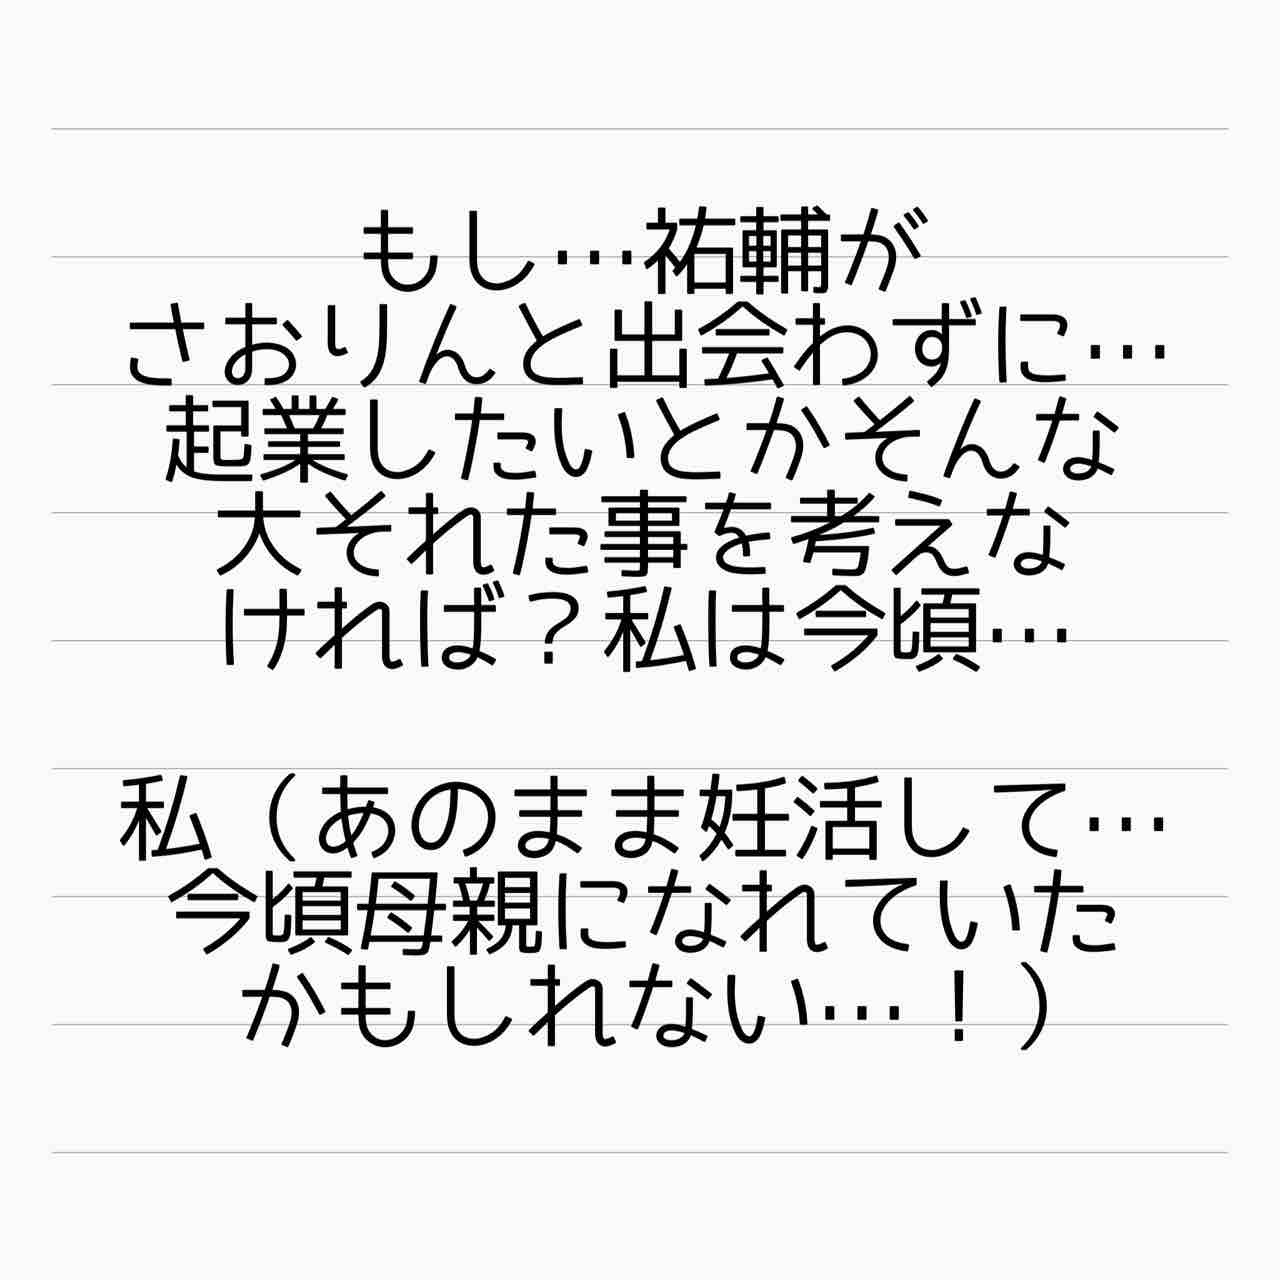 もし…祐輔が
さおりんと出会わずに…
起業したいとかそんな
大それた事を考えな
ければ？私は今頃…
私（あのまま妊活して…
今頃母親になれていた
かもしれない…！）